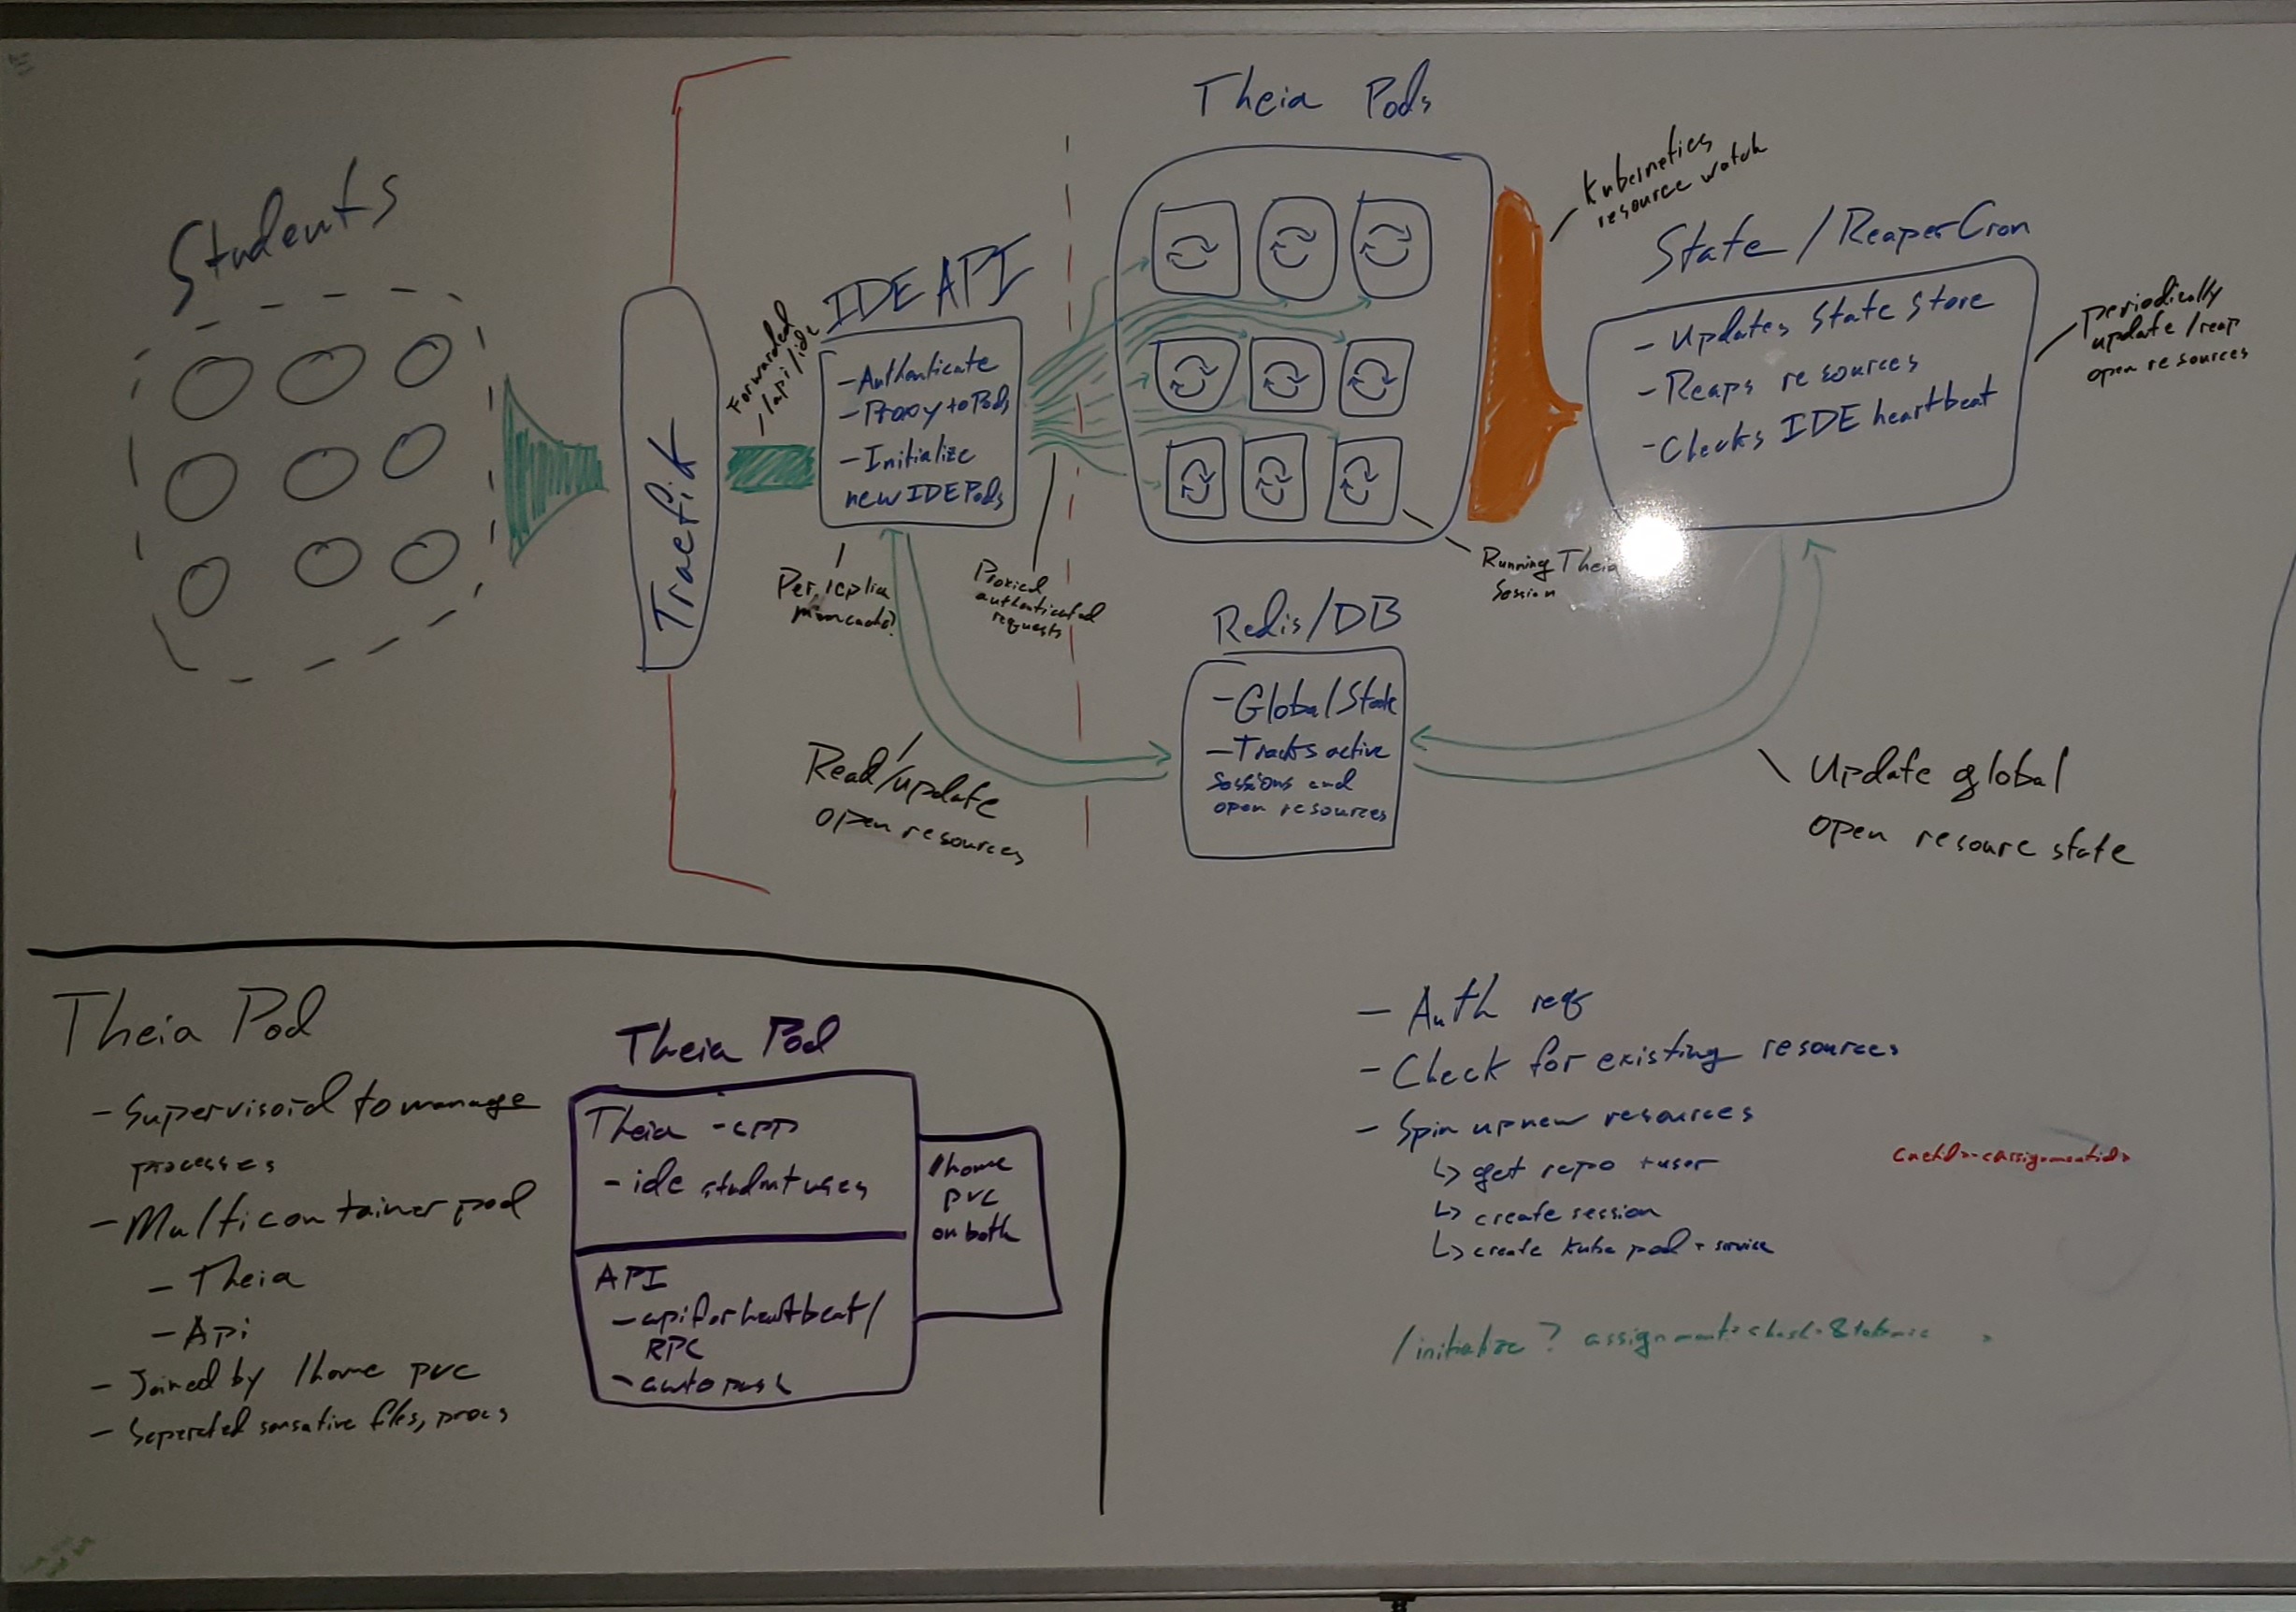 Students
Traefik
Forwarded
/api/ide
IDE API
- Authenticate
- Proxy to Pods
- Initialize
new IDE Pods
Per replica
Proxied
authenticated
requests
Theia Pods
Running Theia
Session
Kubernetics
resource watch
State / Reaper Cron
- Updates State Store
- Reaps resources
- Checks IDE heartbeat
periodically
update / reap
open resources
Redis/DB
- Global State
- Tracks active
sessions and
open resources
Read/update
open resources
Update global
open resoure state
Theia Pod
- Supervisord to manage
processes
- Multicontainer pod
- Theia
- Api
- Joined by /home pvc
- Seperated sensative files, procs
Theia Pod
Theia - cpp
- ide student uses
API
- api for heartbeat/
RPC
- autopush
/home
pvc
on both
- Auth req
- Check for existing resources
- Spin up new resources
↳ get repo + user
↳ create session
↳ create kube pod + service
/initialize ?